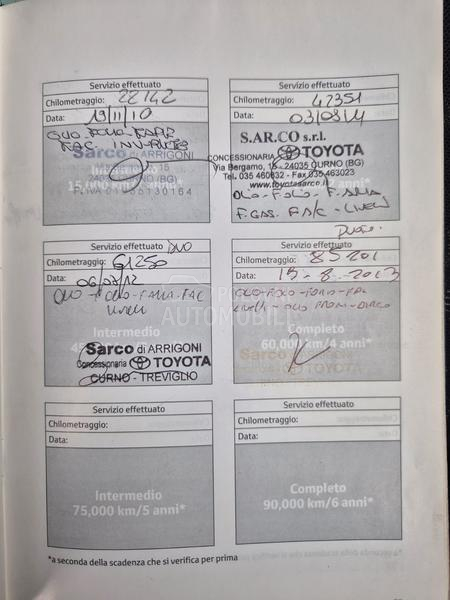 Servizio effettuato
Chilometraggio: 22142
Data: 19/11/10
OLIO FOLIO-FARIA
FAC
Sarco di ARRIGONI
24035 CURNO (BG)
P.IVA
15,000 km/1
Servizio effettuato
Chilometraggio: 42351
Data: 03/08/11
S.AR.CO s.r.l.
CONCESSIONARIA TOYOTA
Via Bergamo, 15 - 24035 CURNO (BG)
Tel. 035 460632 - Fax 035 463023
www.toyotasarco.it
OLIO-FOLIO-F.ARIA
F.GAS. F.A/C-LIVELLI
Servizio effettuato DUO
Chilometraggio: 61250
Data: 06/07/12
OLIO-FOLIO-FARIA-FAC
LIVELLI
Intermedio
Sarco di ARRIGONI
Concessionaria TOYOTA
CURNO - TREVIGLIO
Servizio effettuato
Chilometraggio: 85201
Data: 13-8-2013
LIVELLI-OLIO FRENI-
Completo
60,000 km/4 anni*
AUTOMOBILI
Servizio effettuato
Chilometraggio:
Data:
Intermedio
75,000 km/5 anni*
Servizio effettuato
Chilometraggio:
Data:
Completo
90,000 km/6 anni*
*a seconda della scadenza che si verifica per prima